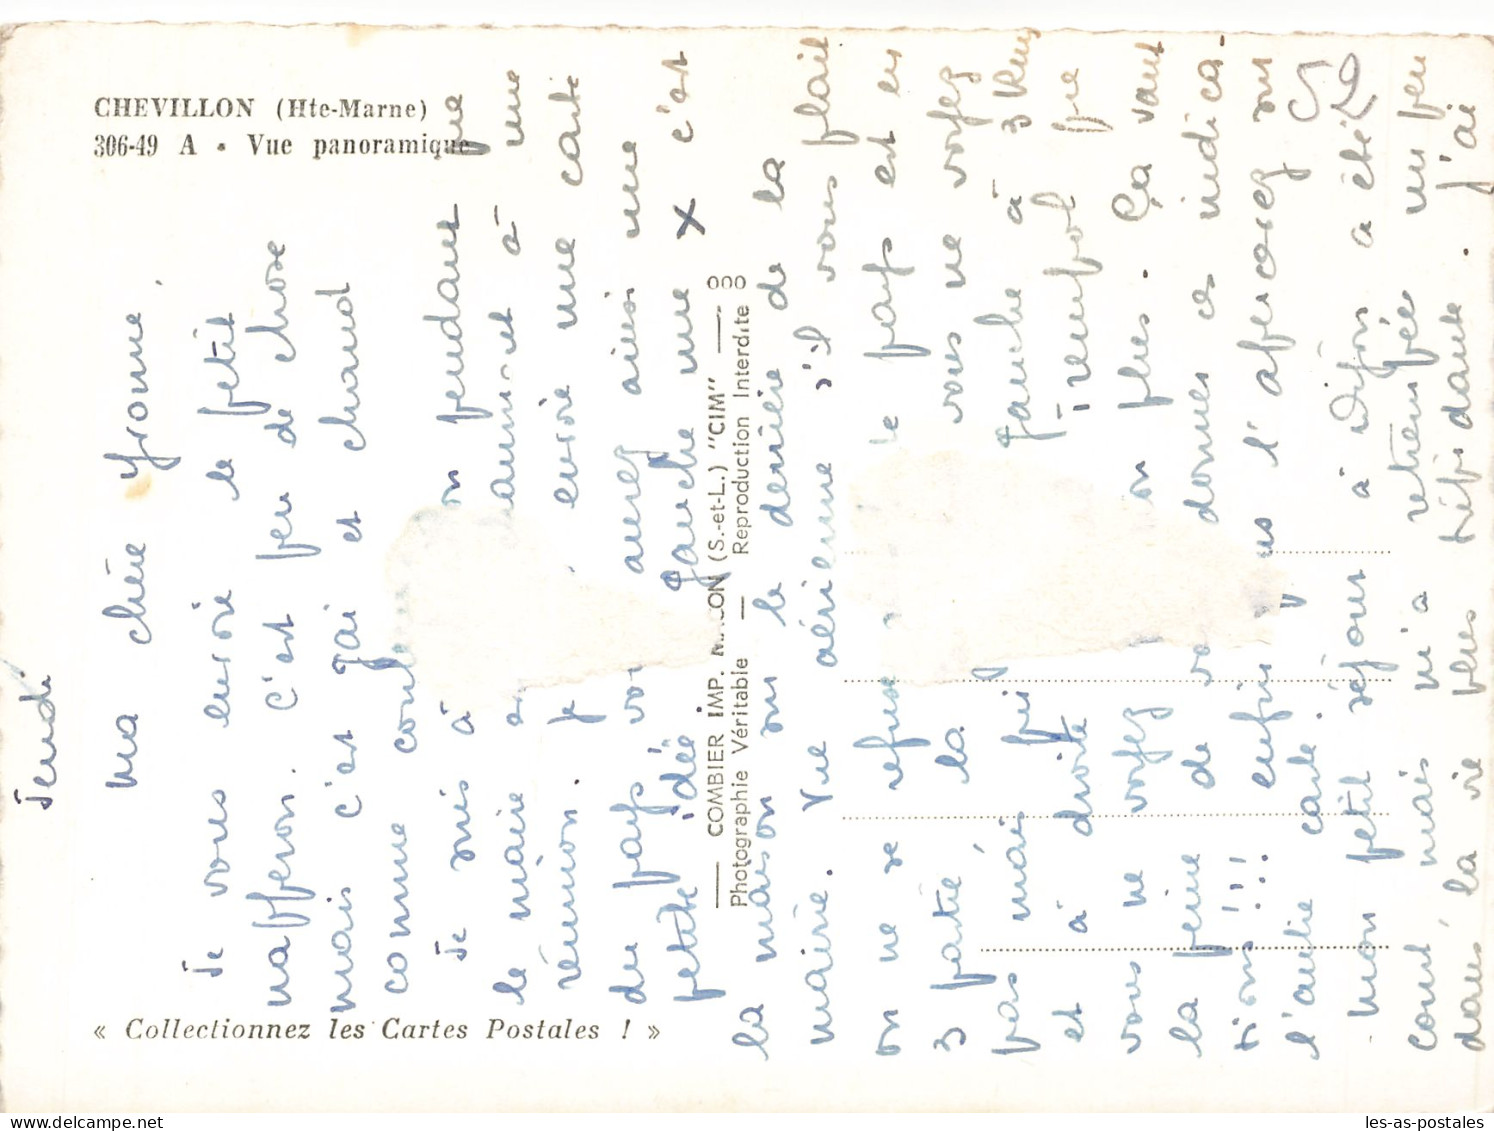 CHEVILLON (Hte-Marne)
306-49 A • Vue panoramique
Jeudi
ma chère Yvonne,
Je vous envoie le petit
napperon. c'est peu de chose
mais c'est gai et chaud
comme
Je suis à pendant que
le maire à une
réunion. Je envoie une carte
du pays aurez ainsi une
petite idée gauche une x c'est
la maison sur le derrière de la
mairie. Vue aérienne s'il vous plait
on ne se refuse pays est en
3 partie, la vous ne voyez
pas mais puis gauche à 3 km
et à droite renufol que
vous ne voyez non plus. Ça vaut
la peine de donner ces indica-
tions !!! enfin l'apercevez sur
l'autre carte.
52
mon petit séjour à Dijon a été
court, mais m'a retrempée un peu
dans la vie plus trépidante. J'ai
COMBIER IMP. MACON (S.-et-L.) "CIM"
Photographie Véritable — Reproduction Interdite
« Collectionnez les Cartes Postales ! »
les-as-postales